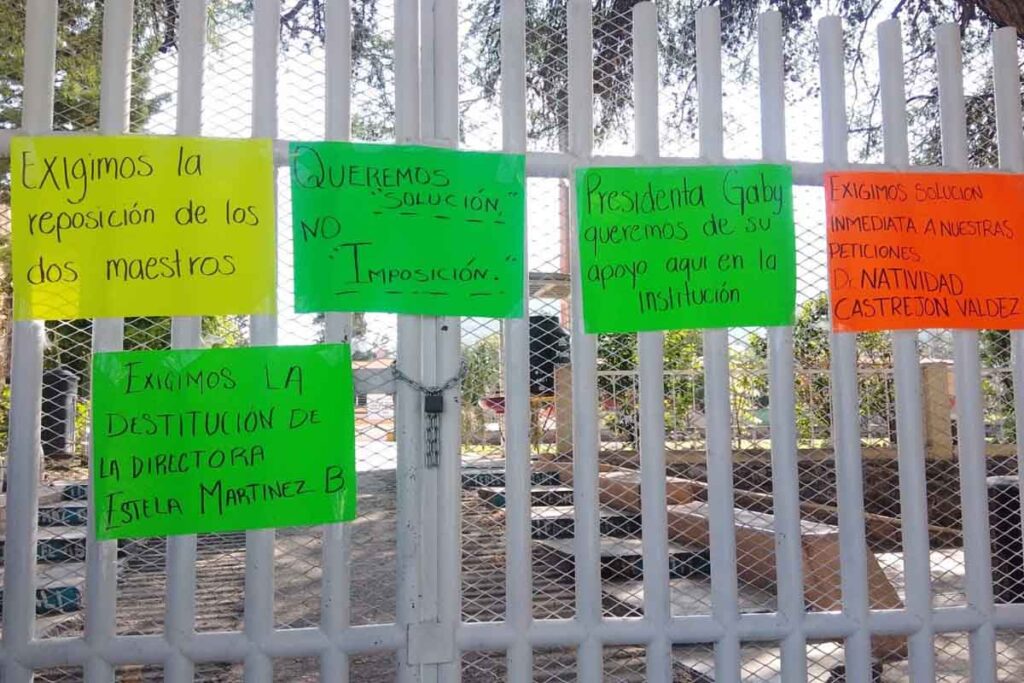 Exigimos la
reposición de los
dos maestros
QUEREMOS
"SOLUCIÓN,"
NO
"IMPOSICIÓN."
Presidenta Gaby
queremos de su
apoyo aqui en la
Institución
EXIGIMOS SOLUCION
INMEDIATA A NUESTRAS
PETICIONES
Dr NATIVIDAD
CASTREJON VALDEZ
EXIGIMOS LA
DESTITUCIÓN DE
LA DIRECTORA
ESTELA MARTINEZ B